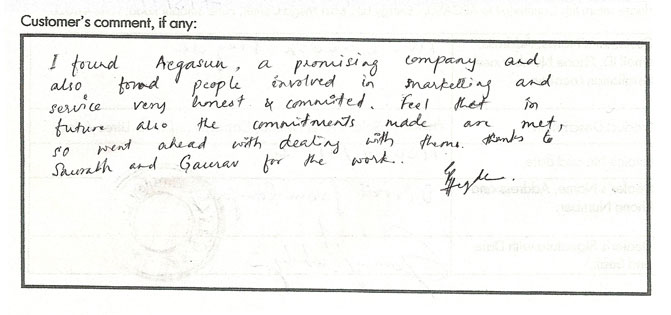 Customer's comment, if any:
I found Aegasun, a promising company and
also found people involved in markelting and
service very honest & commited. Feel that in
future also the commitments made are met,
so went ahead with dealing with them. thanks to
and Gaurav for the work..